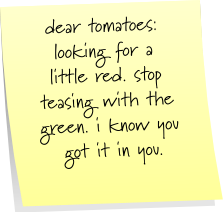 dear tomatoes:
looking for a
little red. stop
teasing with the
green. i know you
got it in you.